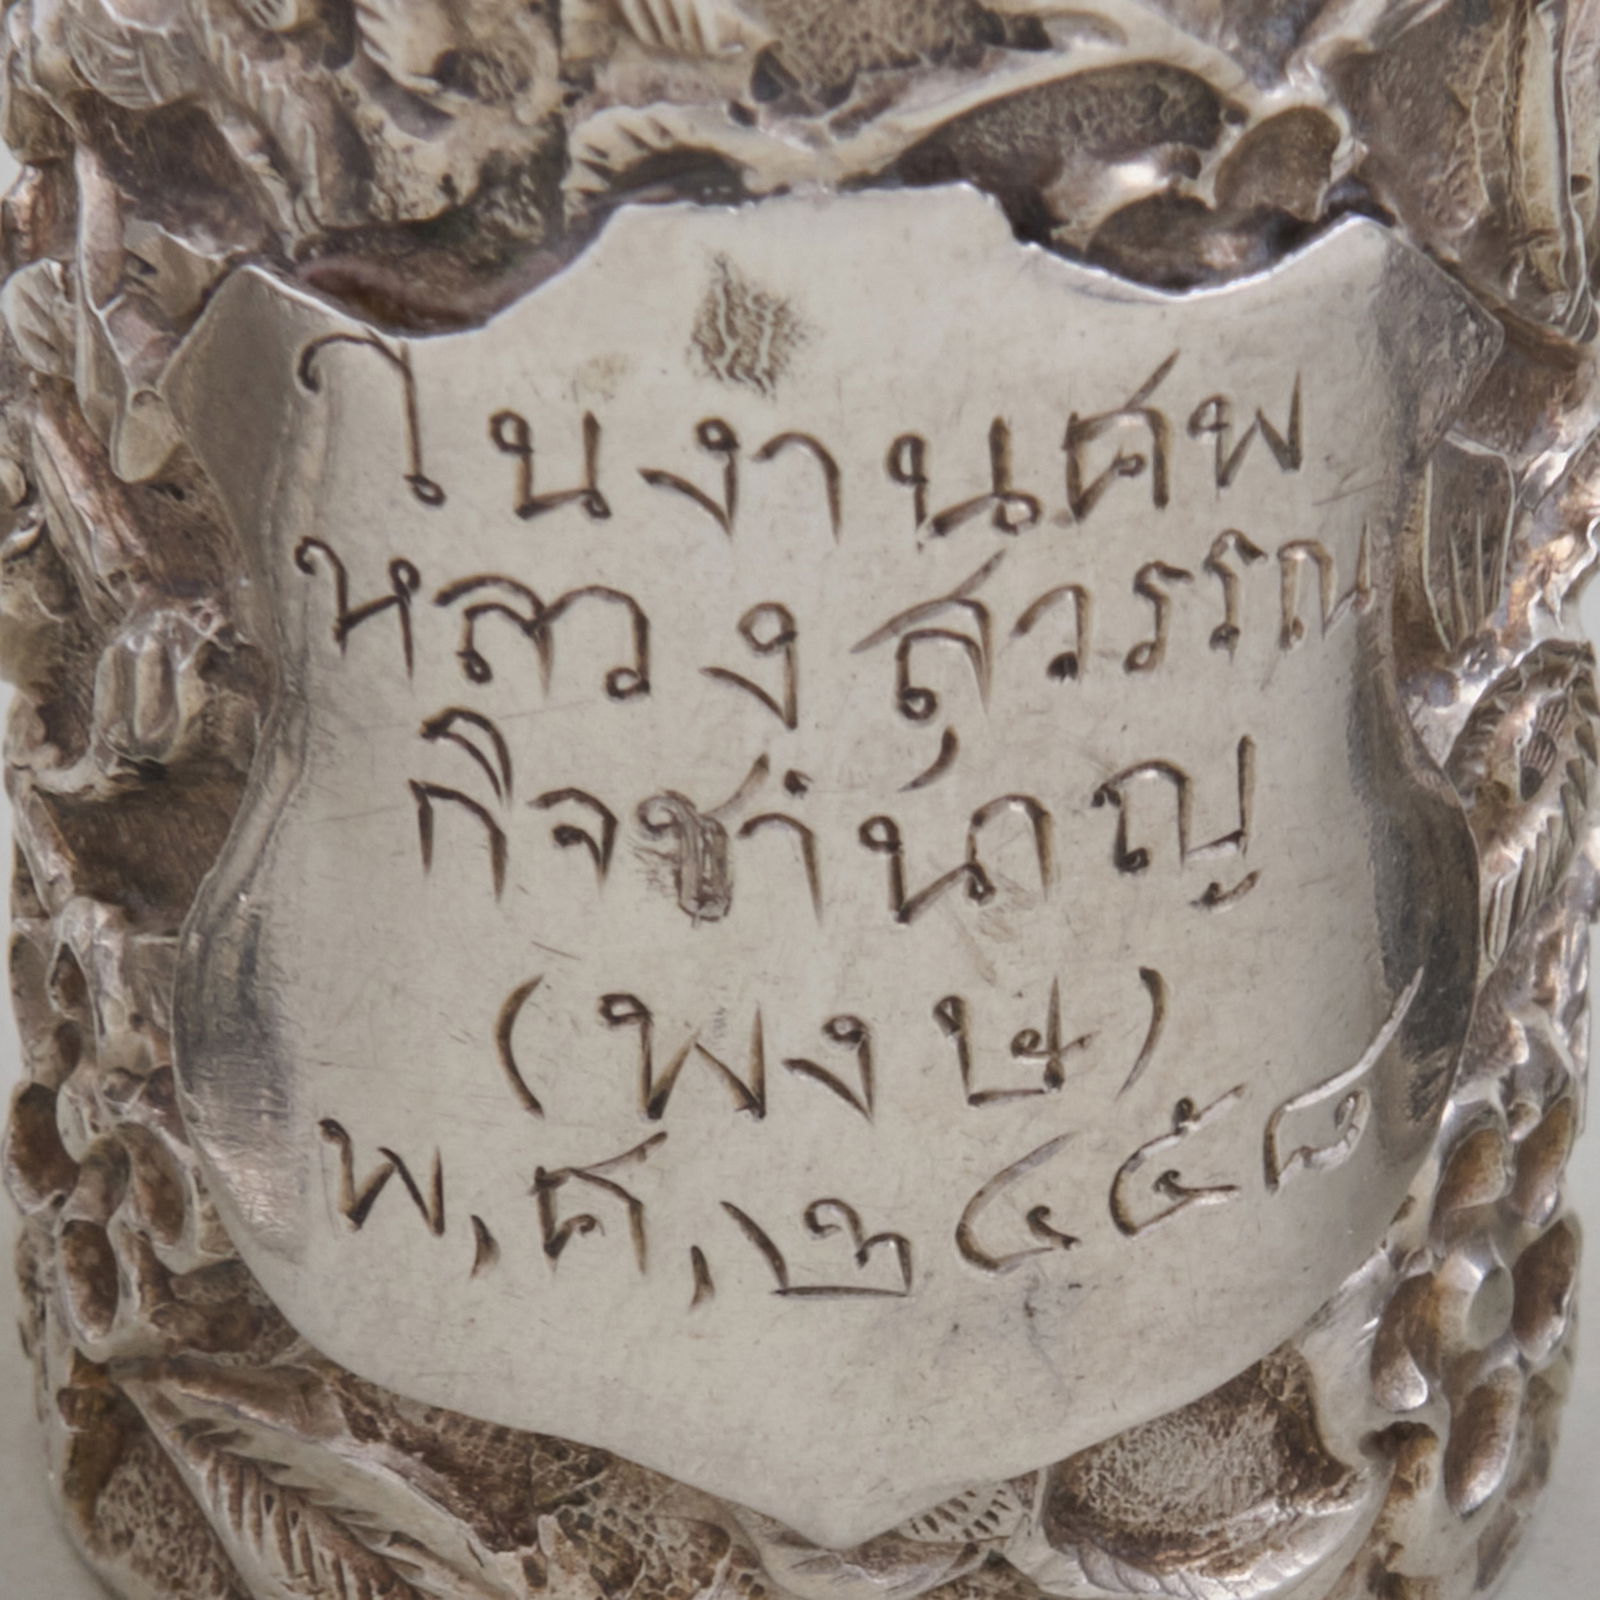 ในงานศพ
หลวงสุวรรณ
กิจชำนาญ
(พงษ)
พ,ศ,๒๔๕๘